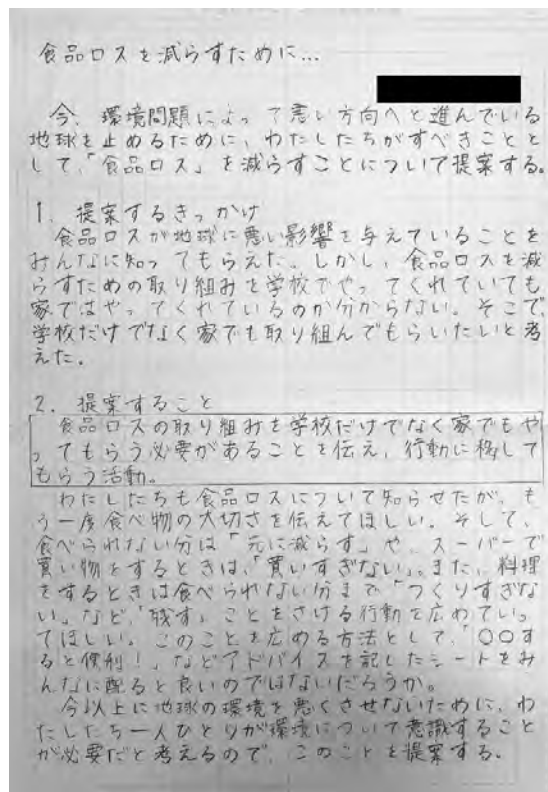 食品ロスを減らすために…
今、環境問題によって悪い方向へと進んでいる
地球を止めるために、わたしたちがすべきことと
して、「食品ロス」を減らすことについて提案する。
1. 提案するきっかけ
食品ロスが地球に悪い影響を与えていることを
みんなに知ってもらえた。しかし、食品ロスを減
らすための取り組みを学校でやってくれていても
家ではやってくれているのか分からない。そこで、
学校だけでなく家でも取り組んでもらいたいと考
えた。
2. 提案すること
食品ロスの取り組みを学校だけでなく家でもや
ってもらう必要があることを伝え、行動に移して
もらう活動。
わたしたちも食品ロスについて知らせたが、も
う一度食べ物の大切さを伝えてほしい。そして、
食べられない分は「元に減らす」や、スーパーで
買い物をするときは、「買いすぎない」。また、料理
をするときは食べられない分まで「つくりすぎな
い」など、「残す」ことをさける行動を広めていっ
てほしい。このことを広める方法として、「〇〇す
ると便利!」などアドバイスを記したシートをみ
んなに配ると良いのではないだろうか。
今以上に地球の環境を悪くさせないために、わ
たしたち一人ひとりが環境について意識すること
が必要だと考えるので、このことを提案する。